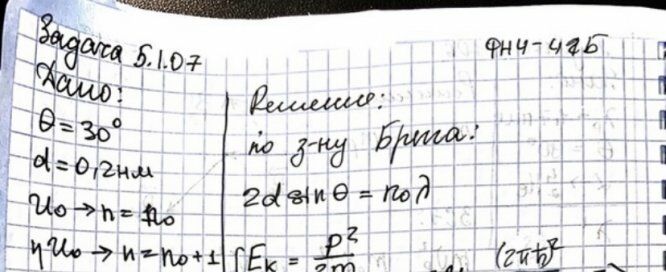 Задача 5.1.07
ФН4-42Б
Дано:
θ = 30°
d = 0,2нм
U₀ → n = n₀
ηU₀ → n = n₀ + 1
Решение:
по з-ну Брэгга:
2d sin θ = n₀λ
E_k = p²/2m
(2πħ)²